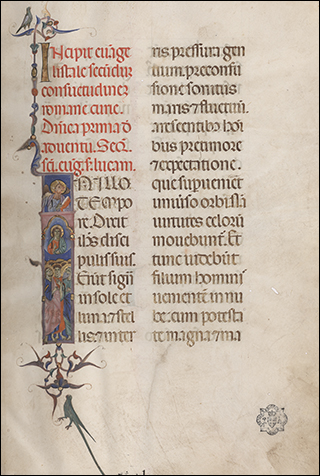 Incipit euãge
listale secũdũ
consuetudinẽ
romane curie.
Dñica prima d̃
aduentu. Secũ.
sci. eug. s. lucam.
IN ILLO
TEMPO
re. Dixit
ihs disci
pulis suis.
Erũt signa
in sole et
luna ⁊ stel
lis ⁊ inter
ris pressura gen
tium. pre confu
sione sonitus
maris ⁊ fluctuũ.
arescentibus hoĩ
bus pre timore
⁊ expectatione.
que superuenient
uniuerso orbi. Nã
uirtutes celorũ
mouebunt. Et
tunc uidebũt
filium hominis
uenientẽ in nu
be. cum potesta
te magna ⁊ ma